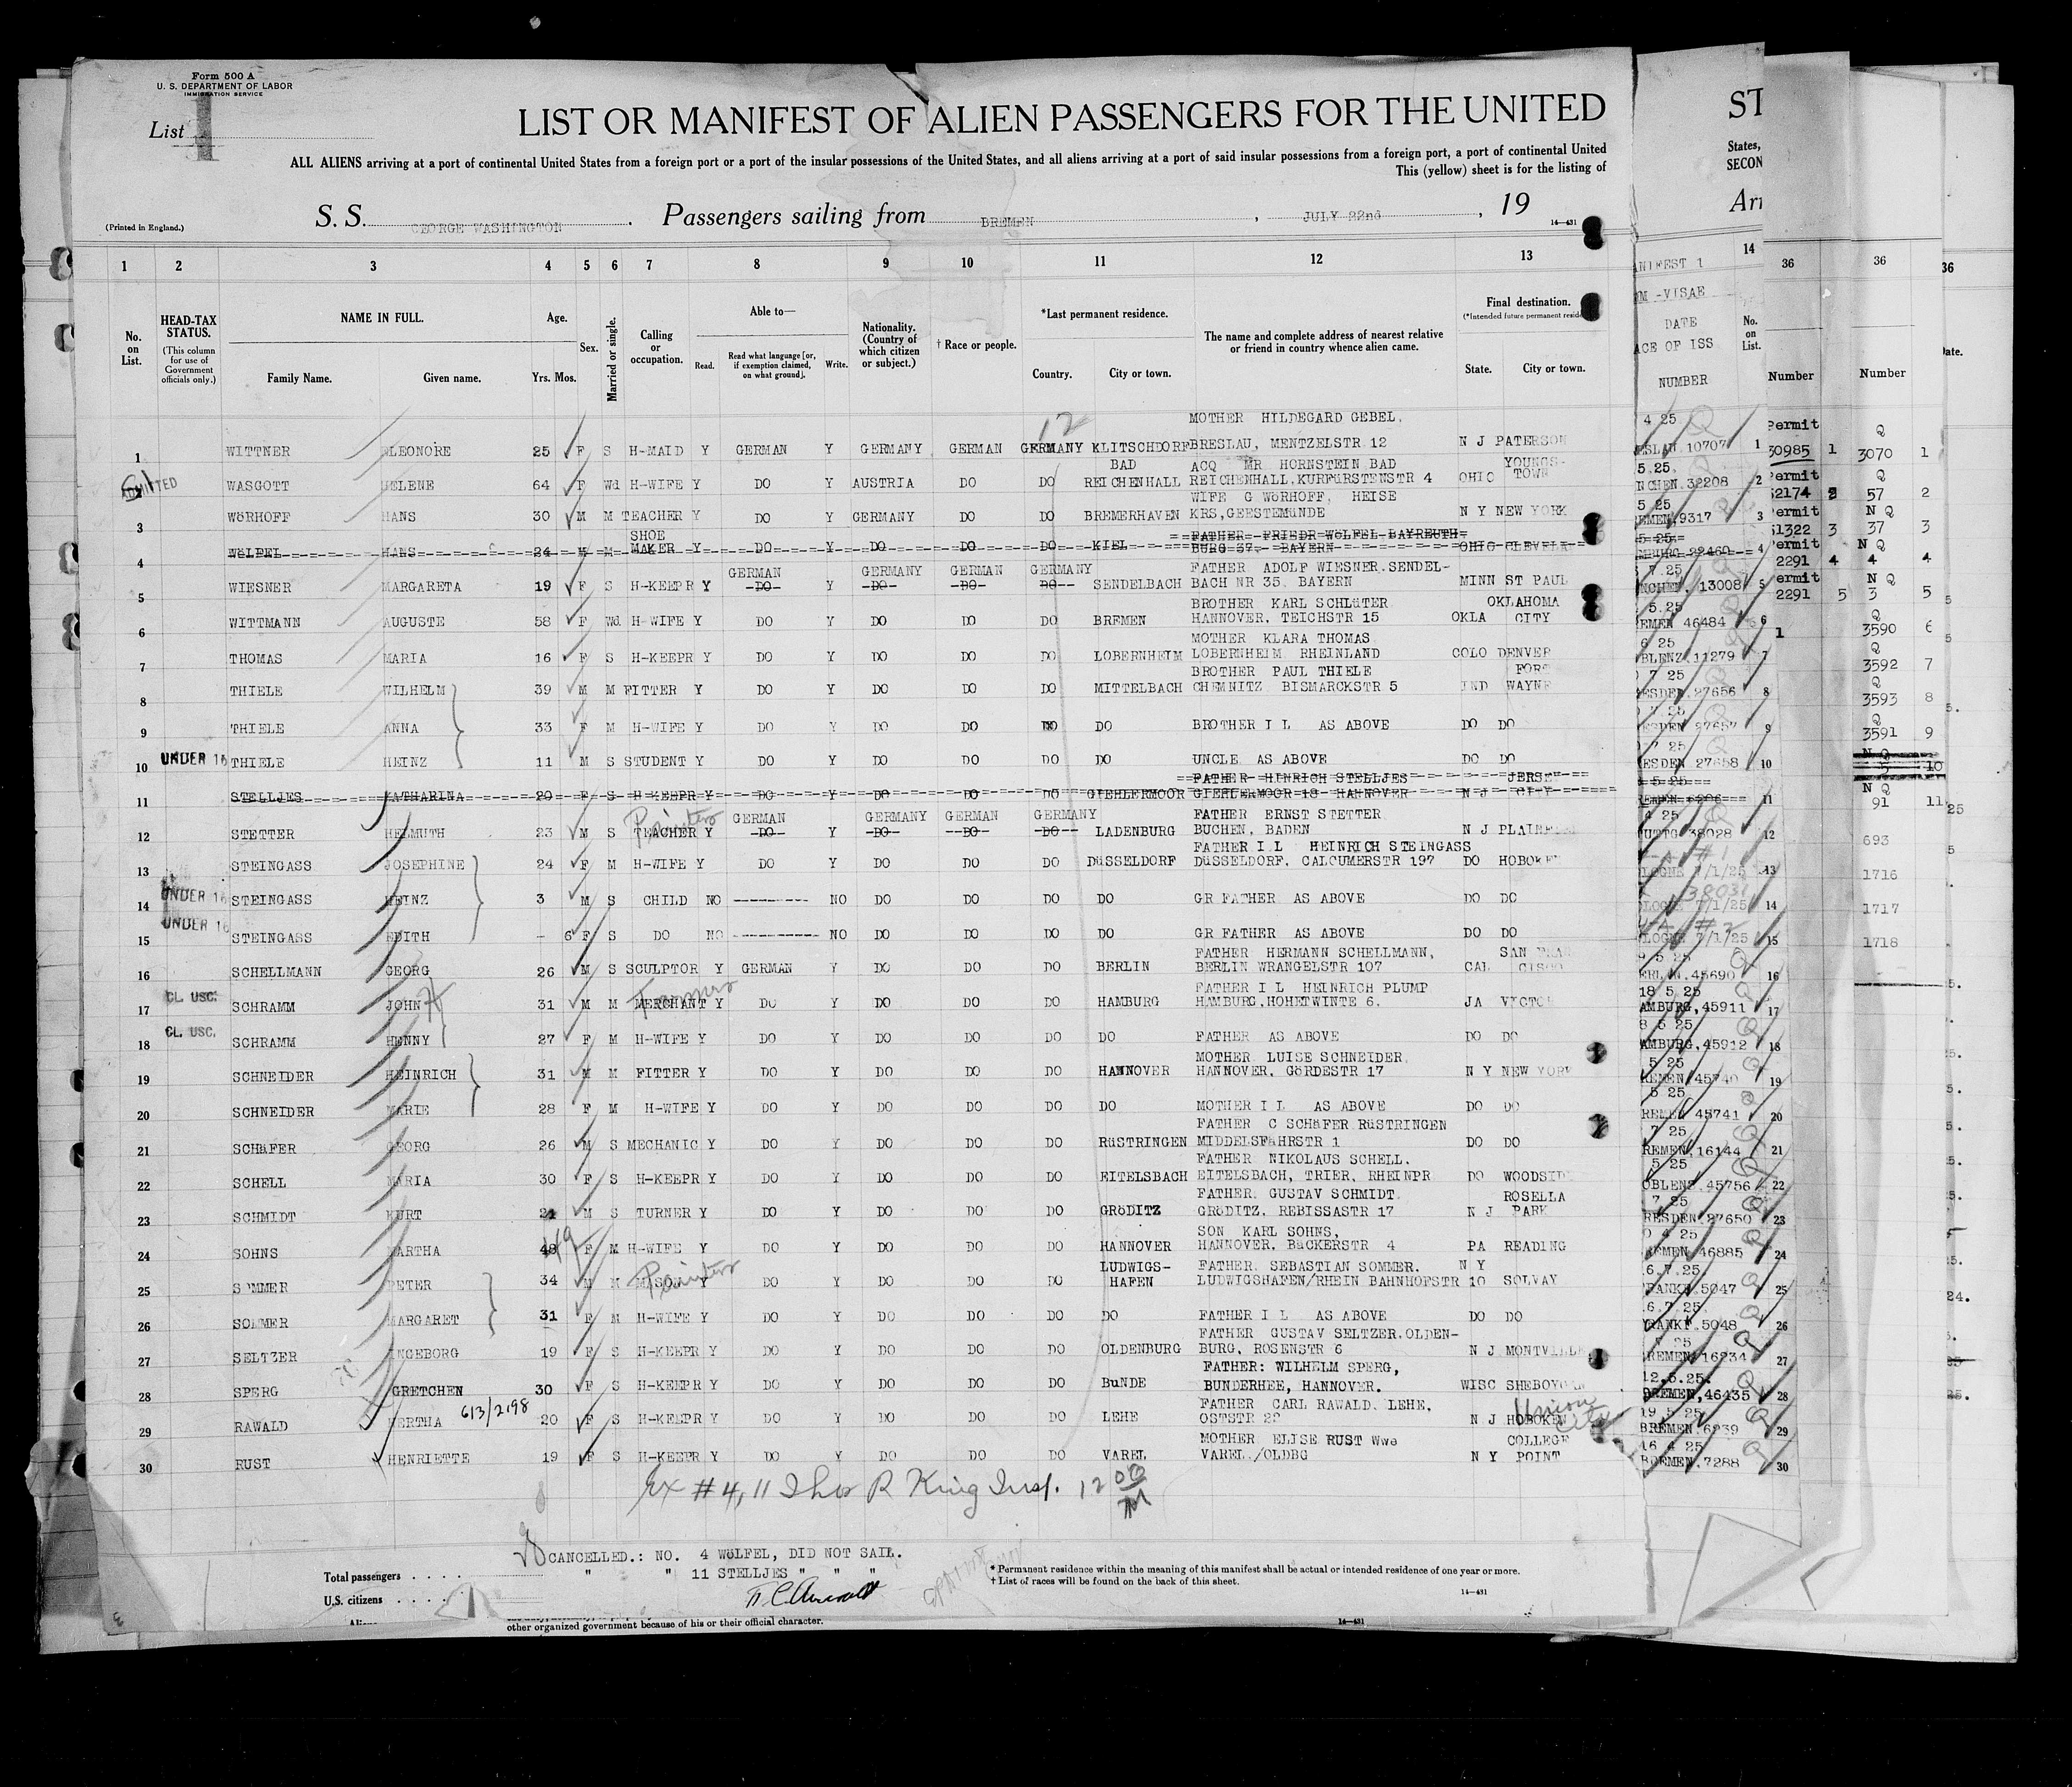 Form 500 A
U. S. DEPARTMENT OF LABOR
IMMIGRATION SERVICE
List 1
LIST OR MANIFEST OF ALIEN PASSENGERS FOR THE UNITED
ALL ALIENS arriving at a port of continental United States from a foreign port or a port of the insular possessions of the United States, and all aliens arriving at a port of said insular possessions from a foreign port, a port of continental United
This (yellow) sheet is for the listing of
(Printed in England.)
S. S. GEORGE WASHINGTON. Passengers sailing from BREMEN, JULY 22nd, 19
14-431
1 2 3 4 5 6 7 8 9 10 11 12 13
No. on List.
HEAD-TAX STATUS.
(This column for use of Government officials only.)
NAME IN FULL.
Family Name. Given name.
Age.
Yrs. Mos.
Sex.
Married or single.
Calling or occupation.
Able to—
Read. Read what language [or, if exemption claimed, on what ground]. Write.
Nationality. (Country of which citizen or subject.)
† Race or people.
*Last permanent residence.
Country. City or town.
The name and complete address of nearest relative or friend in country whence alien came.
Final destination.
State. City or town.
12
MOTHER HILDEGARD GEBEL,
1 WITTNER ELEONORE 25 F S H-MAID Y GERMAN Y GERMANY GERMAN GERMANY KLITSCHDORF BRESLAU, MENTZELSTR 12 N J PATERSON
BAD ACQ MR HORNSTEIN BAD YOUNGS-
ADMITTED WASGOTT HELENE 64 F Wd H-WIFE Y DO Y AUSTRIA DO DO REICHENHALL REICHENHALL, KURFÜRSTENSTR 4 OHIO TOWN
WIFE G WÖRHOFF, HEISE
3 WÖRHOFF HANS 30 M M TEACHER Y DO Y GERMANY DO DO BREMERHAVEN KRS, GEESTEMÜNDE N Y NEW YORK
SHOE FATHER FRIEDR WÖLFEL BAYREUTH
4 WÖLFEL HANS 24 M M MAKER Y DO Y DO DO DO KIEL BURG 37 BAYERN OHIO CLEVELA
GERMAN GERMANY GERMAN GERMANY FATHER ADOLF WIESNER. SENDEL-
5 WIESNER MARGARETA 19 F S H-KEEPR Y DO Y DO DO DO SENDELBACH BACH NR 35. BAYERN MINN ST PAUL
BROTHER KARL SCHLÜTER OKLAHOMA
6 WITTMANN AUGUSTE 58 F Wd H-WIFE Y DO Y DO DO DO BREMEN HANNOVER, TEICHSTR 15 OKLA CITY
MOTHER KLARA THOMAS
7 THOMAS MARIA 16 F S H-KEEPR Y DO Y DO DO DO LOBERNHEIM LOBERNHEIM RHEINLAND COLO DENVER
BROTHER PAUL THIELE FORT
8 THIELE WILHELM 39 M M FITTER Y DO Y DO DO DO MITTELBACH CHEMNITZ BISMARCKSTR 5 IND WAYNE
9 THIELE ANNA 33 F M H-WIFE Y DO Y DO DO DO DO BROTHER I L AS ABOVE DO DO
10 UNDER 16 THIELE HEINZ 11 M S STUDENT Y DO Y DO DO DO DO UNCLE AS ABOVE DO DO
FATHER HINRICH STELLJES JERSEY
11 STELLJES KATHARINA 20 F S H-KEEPR Y DO Y DO DO DO GIEHLERMOOR GIEHLERMOOR 18 HANNOVER N J CITY
Painter GERMAN GERMANY GERMAN GERMANY FATHER ERNST STETTER
12 STETTER HELMUTH 23 M S TEACHER Y DO Y DO DO DO LADENBURG BUCHEN, BADEN N J PLAINF
FATHER I L HEINRICH STEINGASS
13 STEINGASS JOSEPHINE 24 F M H-WIFE Y DO Y DO DO DO DÜSSELDORF DÜSSELDORF. CALCUMERSTR 197 DO HOBOKEN
14 UNDER 16 STEINGASS HEINZ 3 M S CHILD NO NO DO DO DO DO GR FATHER AS ABOVE DO DO
15 UNDER 16 STEINGASS EDITH - 6 F S DO NO NO DO DO DO DO GR FATHER AS ABOVE DO DO
FATHER HERMANN SCHELLMANN, SAN FRAN
16 SCHELLMANN GEORG 26 M S SCULPTOR Y GERMAN Y DO DO DO BERLIN BERLIN WRANGELSTR 107 CAL CISCO
Farmer FATHER I L HEINRICH PLUMP
17 CL. USC. SCHRAMM JOHN H 31 M M MERCHANT Y DO Y DO DO DO HAMBURG HAMBURG, HOHETWINTE 6. JA VICTOR
18 CL. USC. SCHRAMM HENNY 27 F M H-WIFE Y DO Y DO DO DO DO FATHER AS ABOVE DO DO
MOTHER LUISE SCHNEIDER
19 SCHNEIDER HEINRICH 31 M M FITTER Y DO Y DO DO DO HANNOVER HANNOVER. GÖRDESTR 17 N Y NEW YORK
20 SCHNEIDER MARIE 28 F M H-WIFE Y DO Y DO DO DO DO MOTHER I L AS ABOVE DO DO
FATHER C SCHÄFER RÜSTRINGEN
21 SCHÄFER GEORG 26 M S MECHANIC Y DO Y DO DO DO RÜSTRINGEN MIDDELSFÄHRSTR 1 DO DO
FATHER NIKOLAUS SCHELL.
22 SCHELL MARIA 30 F S H-KEEPR Y DO Y DO DO DO EITELSBACH EITELSBACH, TRIER, RHEINPR DO WOODSID
FATHER GUSTAV SCHMIDT ROSELLA
23 SCHMIDT KURT 21 M S TURNER Y DO Y DO DO DO GRÖDITZ GRÖDITZ. REBISSASTR 17 N J PARK
SON KARL SOHNS,
24 SOHNS MARTHA 48 49 F M H-WIFE Y DO Y DO DO DO HANNOVER HANNOVER. BÄCKERSTR 4 PA READING
Painter LUDWIGS- FATHER SEBASTIAN SOMMER. N Y
25 SOMMER PETER 34 M M MASON Y DO Y DO DO DO HAFEN LUDWIGSHAFEN/RHEIN BAHNHOFSTR 10 SOLVAY
26 SOMMER MARGARET 31 F M H-WIFE Y DO Y DO DO DO DO FATHER I L AS ABOVE DO DO
FATHER GUSTAV SELTZER. OLDEN-
27 SELTZER INGEBORG 19 F S H-KEEPR Y DO Y DO DO DO OLDENBURG BURG, ROSENSTR 6 N J MONTVILLE
FATHER: WILHELM SPERG,
28 SPERG GRETCHEN 30 F S H-KEEPR Y DO Y DO DO DO BUNDE BUNDERHEE, HANNOVER. WISC SHEBOYGAN
613/2198 FATHER CARL RAWALD. LEHE, Union City
29 RAWALD HERTHA 20 F S H-KEEPR Y DO Y DO DO DO LEHE OSTSTR 22 N J HOBOKEN
MOTHER ELISE RUST Wwe COLLEGE
30 RUST HENRIETTE 19 F S H-KEEPR Y DO Y DO DO DO VAREL VAREL./OLDBG N Y POINT
Ex # 4, 11 Thos R King Insp. 12 00
CANCELLED.: NO. 4 WÖLFEL, DID NOT SAIL.
" " 11 STELLJES " " "
Total passengers
U.S. citizens
* Permanent residence within the meaning of this manifest shall be actual or intended residence of one year or more.
† List of races will be found on the back of this sheet.
14-431
other organized government because of his or their official character.
14-431
ST
States,
SECON
Arr
14
No. on List.
DATE
NUMBER
36 36 36
Number Number
Permit Q
30985 1 3070 1
Permit Q
52174 2 57 2
Permit N Q
51322 3 37 3
Permit N Q
2291 4 4 4
N Q
2291 5 3 5
Q
3590 6
Q
3592 7
Q
3593 8
Q
3591 9
N Q
10
N Q
91 11
693
1716
1717
1718